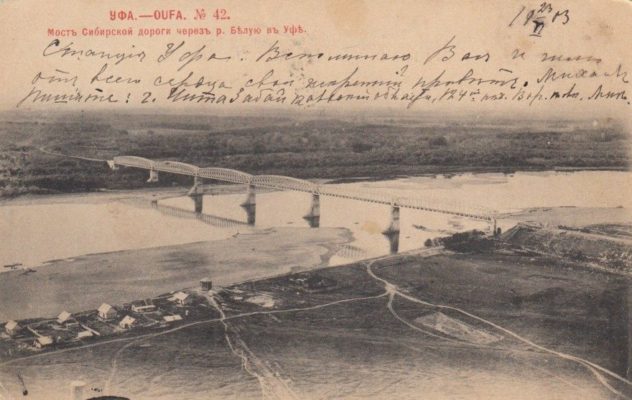 УФА.—OUFA. № 42.
Мостъ Сибирской дороги черезъ р. Бѣлую въ Уфѣ.
19 23 03
Станція Уфа. Вспоминаю Васъ и шлю
отъ всего сердца свой искренній привѣтъ. Михаилъ
Пишите: г. Чита Забайкальской